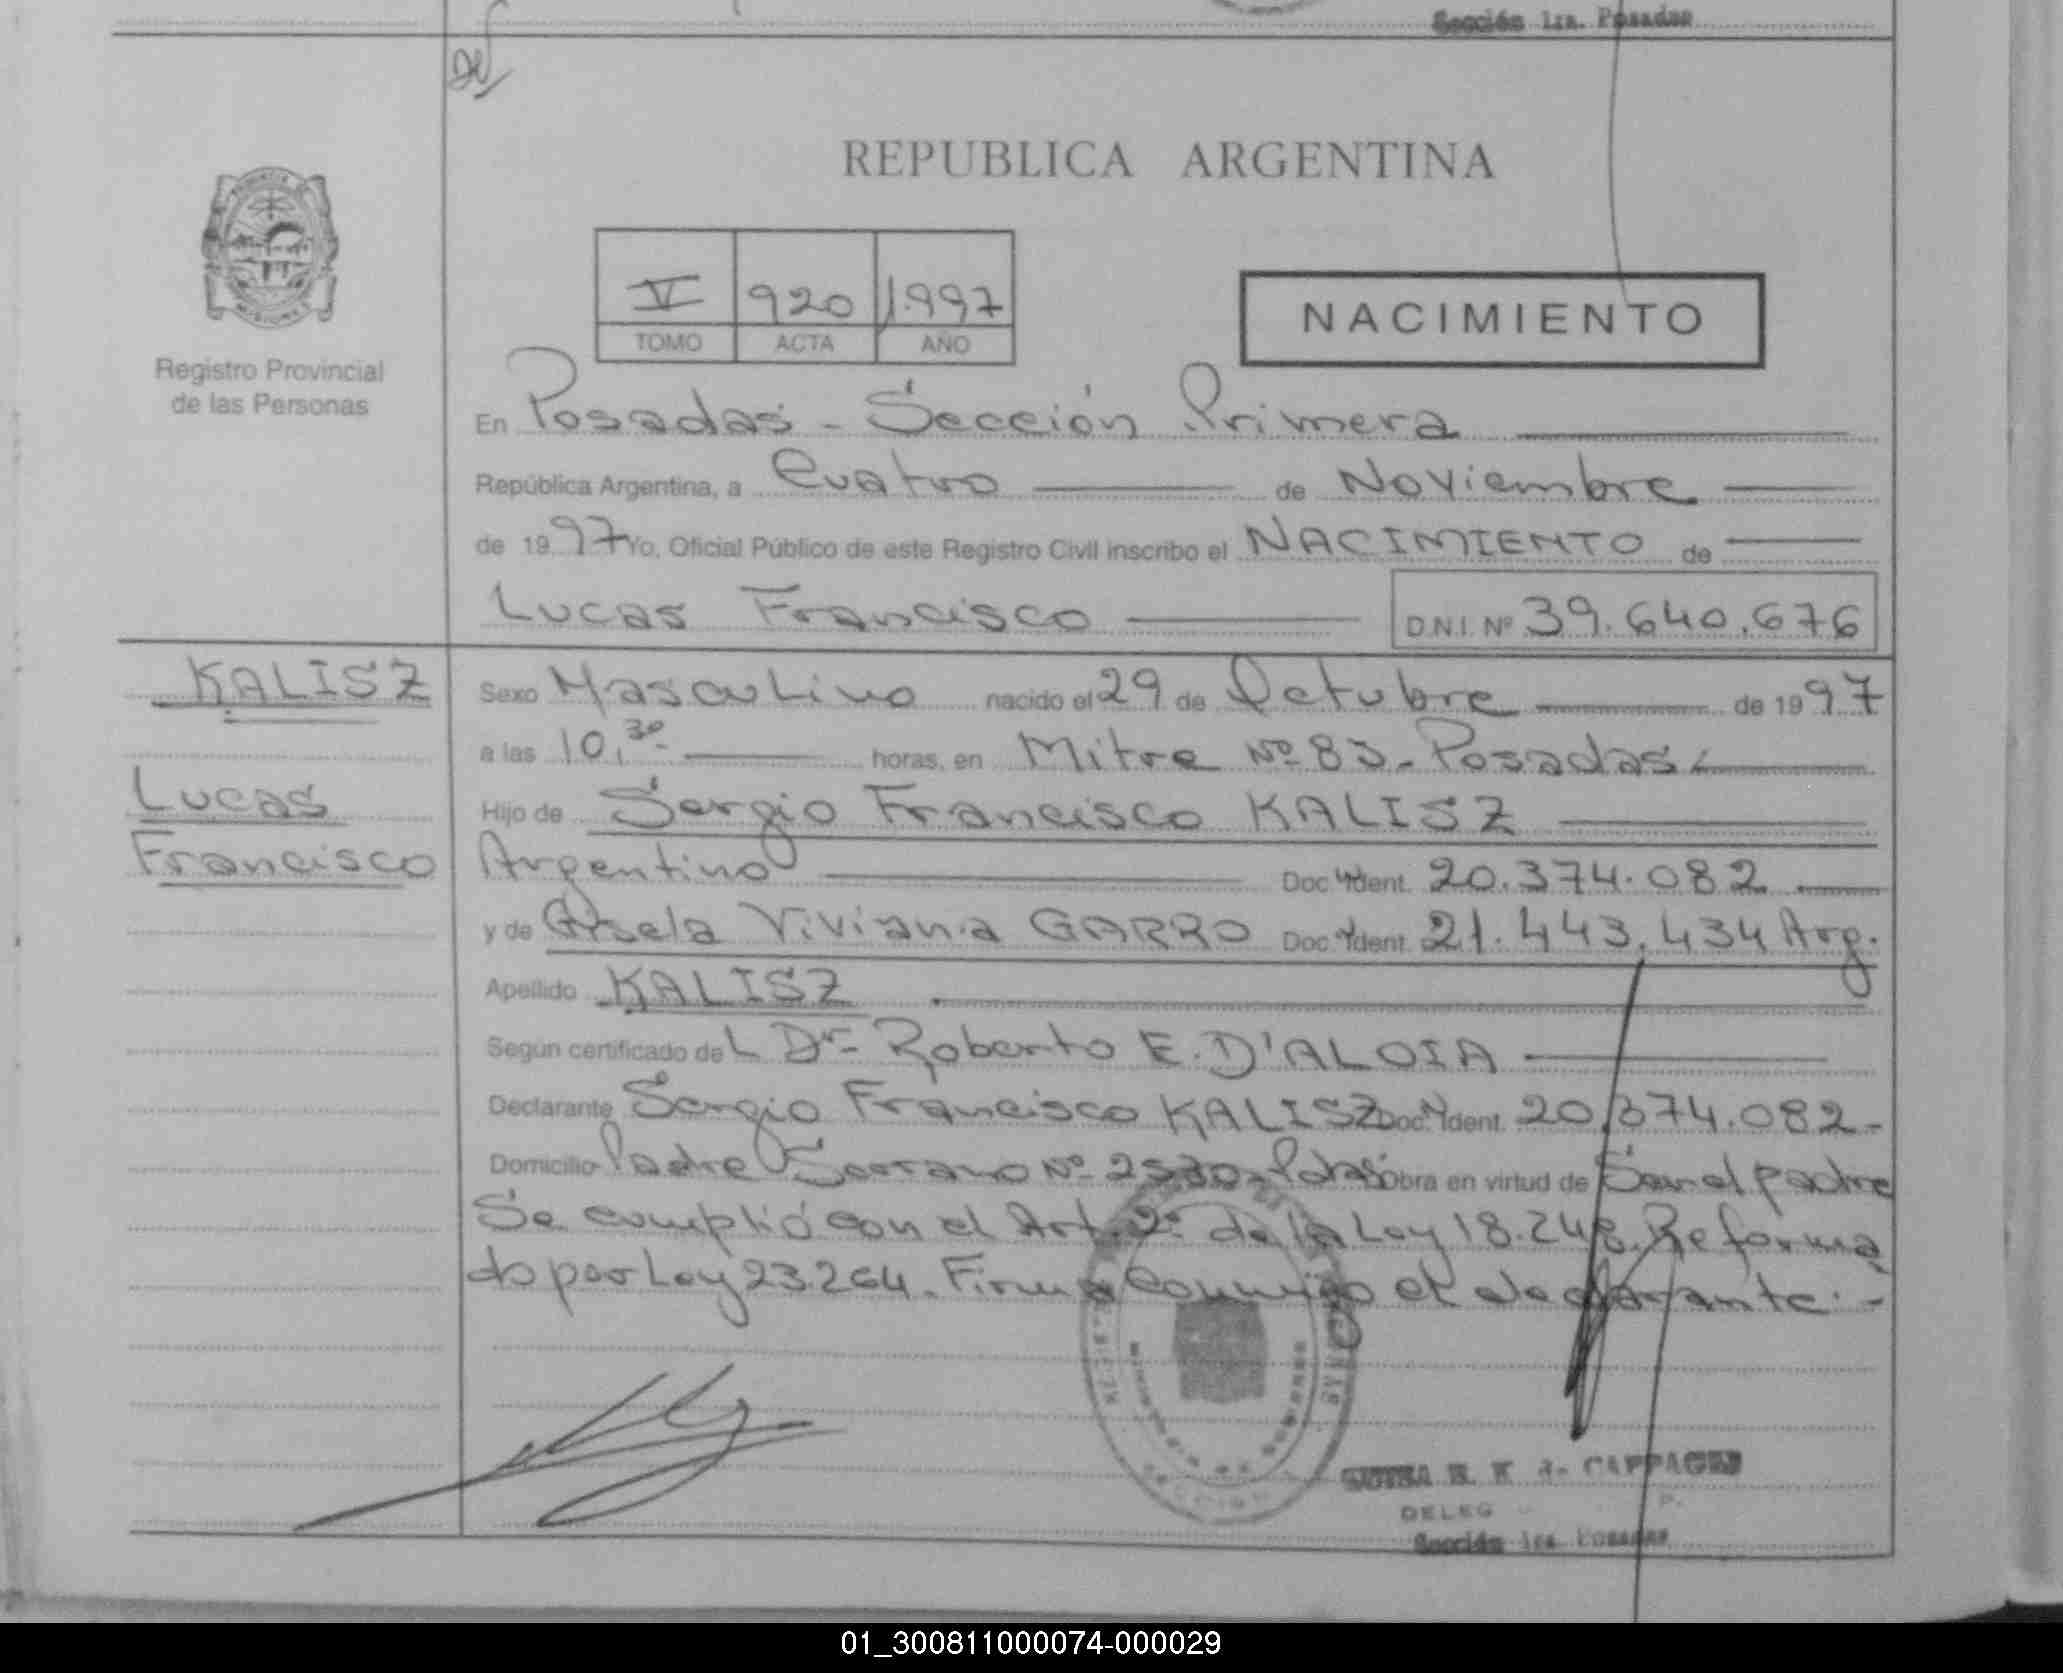 Sección 1ra. Posadas
REPUBLICA ARGENTINA
V 920 1.997
TOMO ACTA AÑO
NACIMIENTO
Registro Provincial
de las Personas
En Posadas - Sección Primera
República Argentina, a Cuatro de Noviembre
de 1997 Yo, Oficial Público de este Registro Civil inscribo el NACIMIENTO de
Lucas Francisco D.N.I. Nº 39.640.676
KALISZ
Lucas
Francisco
Sexo Masculino nacido el 29 de Octubre de 1997
a las 10,30 horas, en Mitre Nº 83 - Posadas
Hijo de Sergio Francisco KALISZ
Argentino Doc. Ident. 20.374.082
y de Gisela Viviana GARRO Doc. Ident. 21.443.434 Arg.
Apellido KALISZ
Según certificado del Dr. Roberto E. D'ALOIA
Declarante Sergio Francisco KALISZ Doc. Ident. 20.374.082-
Domicilio Padre Serrano Nº 2530 - Pdas Obra en virtud de Ser el padre
Se cumplió con el Art. 2º de la Ley 18.248. Reforma
do por Ley 23.264. Firma conmigo el declarante.-
DELEG
Sección 1ra. Posadas
01_300811000074-000029